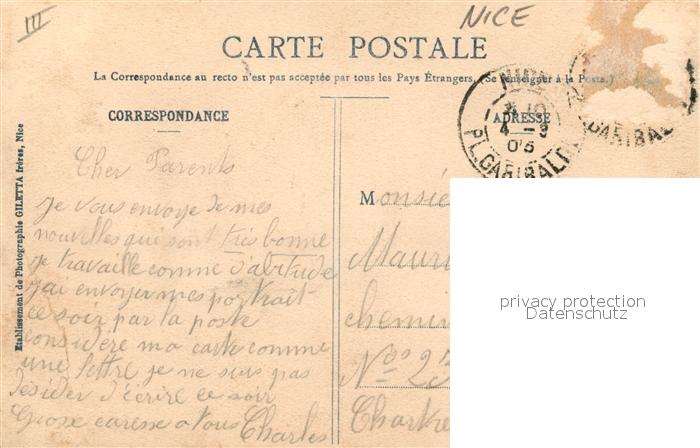 III
NICE
CARTE POSTALE
La Correspondance au recto n'est pas acceptée par tous les Pays Étrangers. (Se renseigner à la Poste.)
CORRESPONDANCE
ADRESSE
NICE
4 - 3
PL. GARIBALDI
GARIBAL
Etablissement de Photographie GILETTA frères, Nice
Cher Parents
Je vous envoye de mes
nouvelles qui sont très bonne
je travaille comme d'abitude
j'ai envoyer mes portrait
ce soir par la poste
considère ma carte comme
une lettre je ne suis pas
désider d'écrire ce soir
Grosse caresse a vous Charles
Monsie
Mauri
chemin
No 25
Chartre
privacy protection
Datenschutz